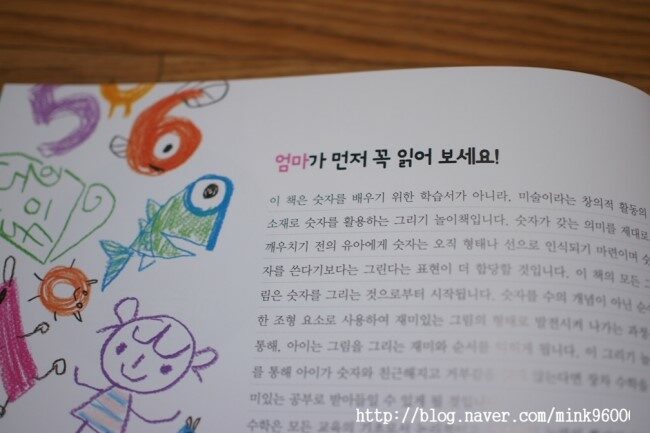 5
6
엄마가 먼저 꼭 읽어 보세요!
이 책은 숫자를 배우기 위한 학습서가 아니라. 미술이라는 창의적 활동의
소재로 숫자를 활용하는 그리기 놀이책입니다. 숫자가 갖는 의미를 제대로
깨우치기 전의 유아에게 숫자는 오직 형태나 선으로 인식되기 마련이며 숫
자를 쓴다기보다는 그린다는 표현이 더 합당할 것입니다. 이 책의 모든 그
림은 숫자를 그리는 것으로부터 시작됩니다. 숫자를 수의 개념이 아닌 순수
한 조형 요소로 사용하여 재미있는 그림의 형태로 발전시켜 나가는 과정
통해, 아이는 그림을 그리는 재미와 순서를 익히게 됩니다. 이 그리기 놀
를 통해 아이가 숫자와 친근해지고 거부감을 갖지 않는다면 장차 수학을
미있는 공부로 받아들일 수 있게 될 것입니다.
수학은 모든 교육의
http://blog.naver.com/mink9600